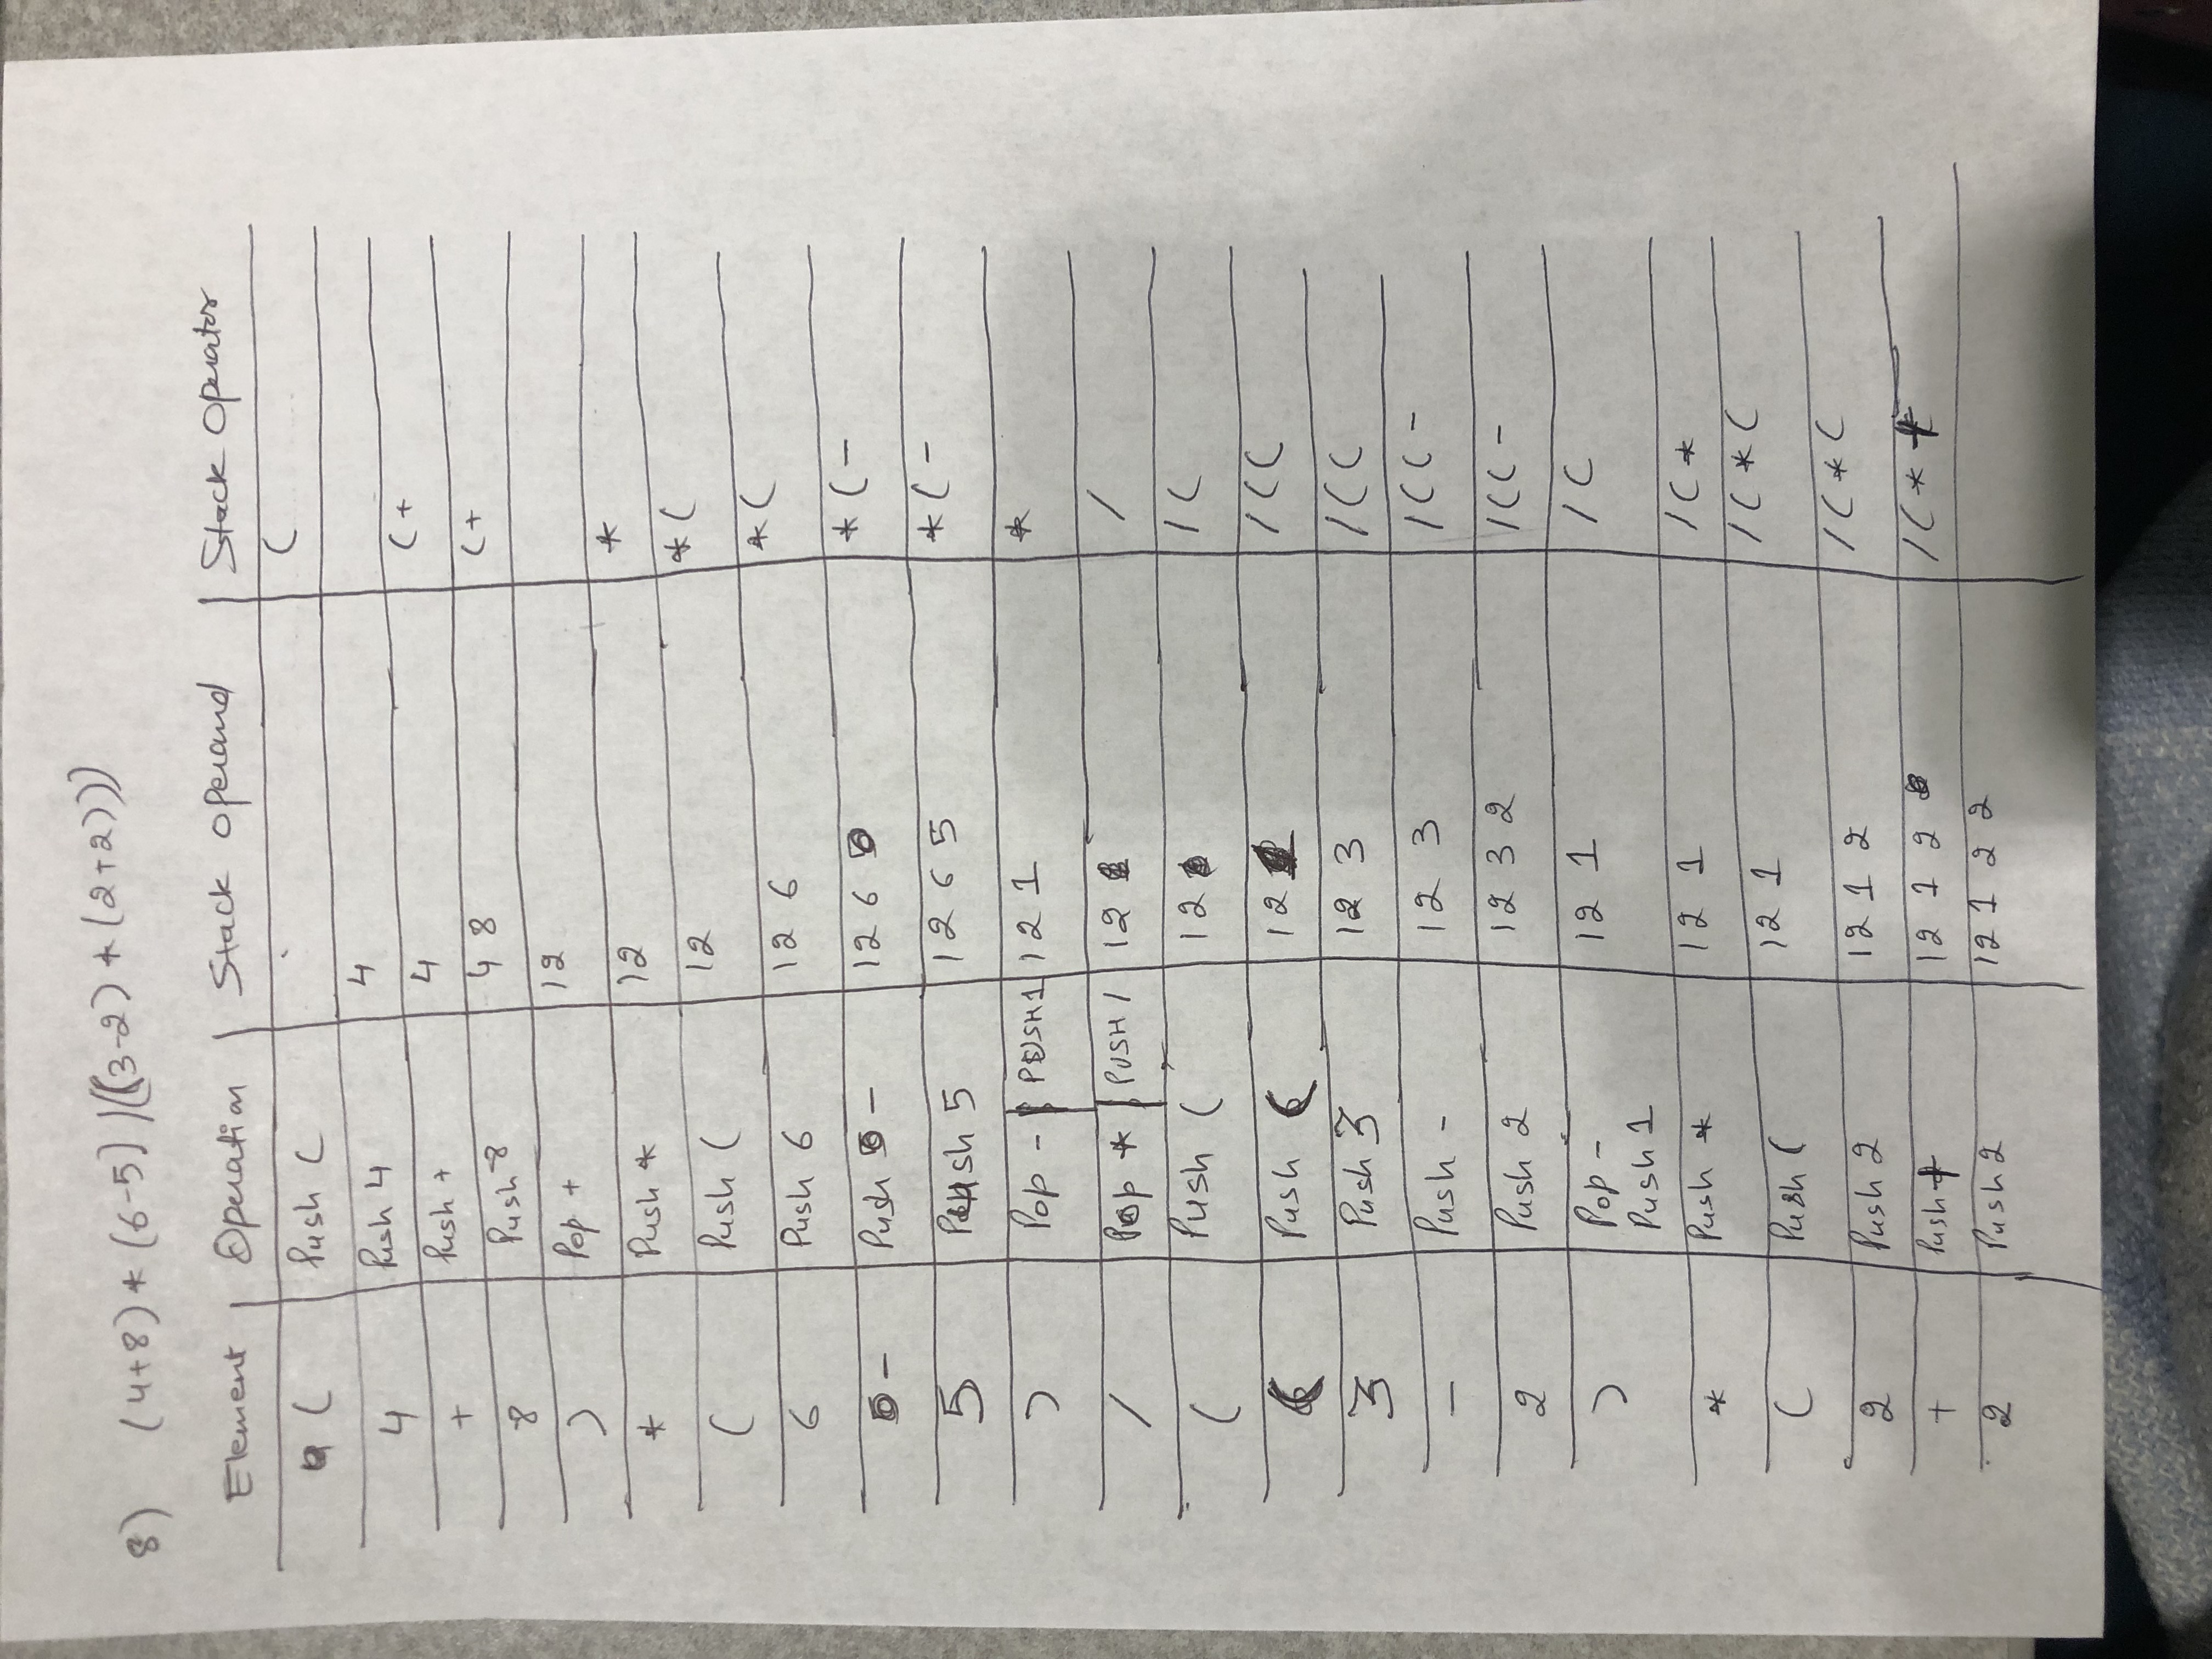 8) (4+8) * (6-5) /((3-2) * (2+2)))
Element | Operation | Stack Operand | Stack Operator
( | Push ( | | (
4 | Push 4 | 4 |
+ | Push + | 4 | ( +
8 | Push 8 | 4 8 | ( +
) | Pop + | 12 |
* | Push * | 12 | *
( | Push ( | 12 | * (
6 | Push 6 | 12 6 | * (
- | Push - | 12 6 | * ( -
5 | Push 5 | 12 6 5 | * ( -
) | Pop - | PUSH 1 | 12 1 | *
/ | Pop * | PUSH / | 12 | /
( | Push ( | 12 | / (
( | Push ( | 12 | / ( (
3 | Push 3 | 12 3 | / ( (
- | Push - | 12 3 | / ( ( -
2 | Push 2 | 12 3 2 | / ( ( -
) | Pop - | 12 1 | / (
Push 1
* | Push * | 12 1 | / ( *
( | Push ( | 12 1 | / ( * (
2 | Push 2 | 12 1 2 | / ( * (
+ | Push + | 12 1 2 | / ( *
2 | Push 2 | 12 1 2 2 |